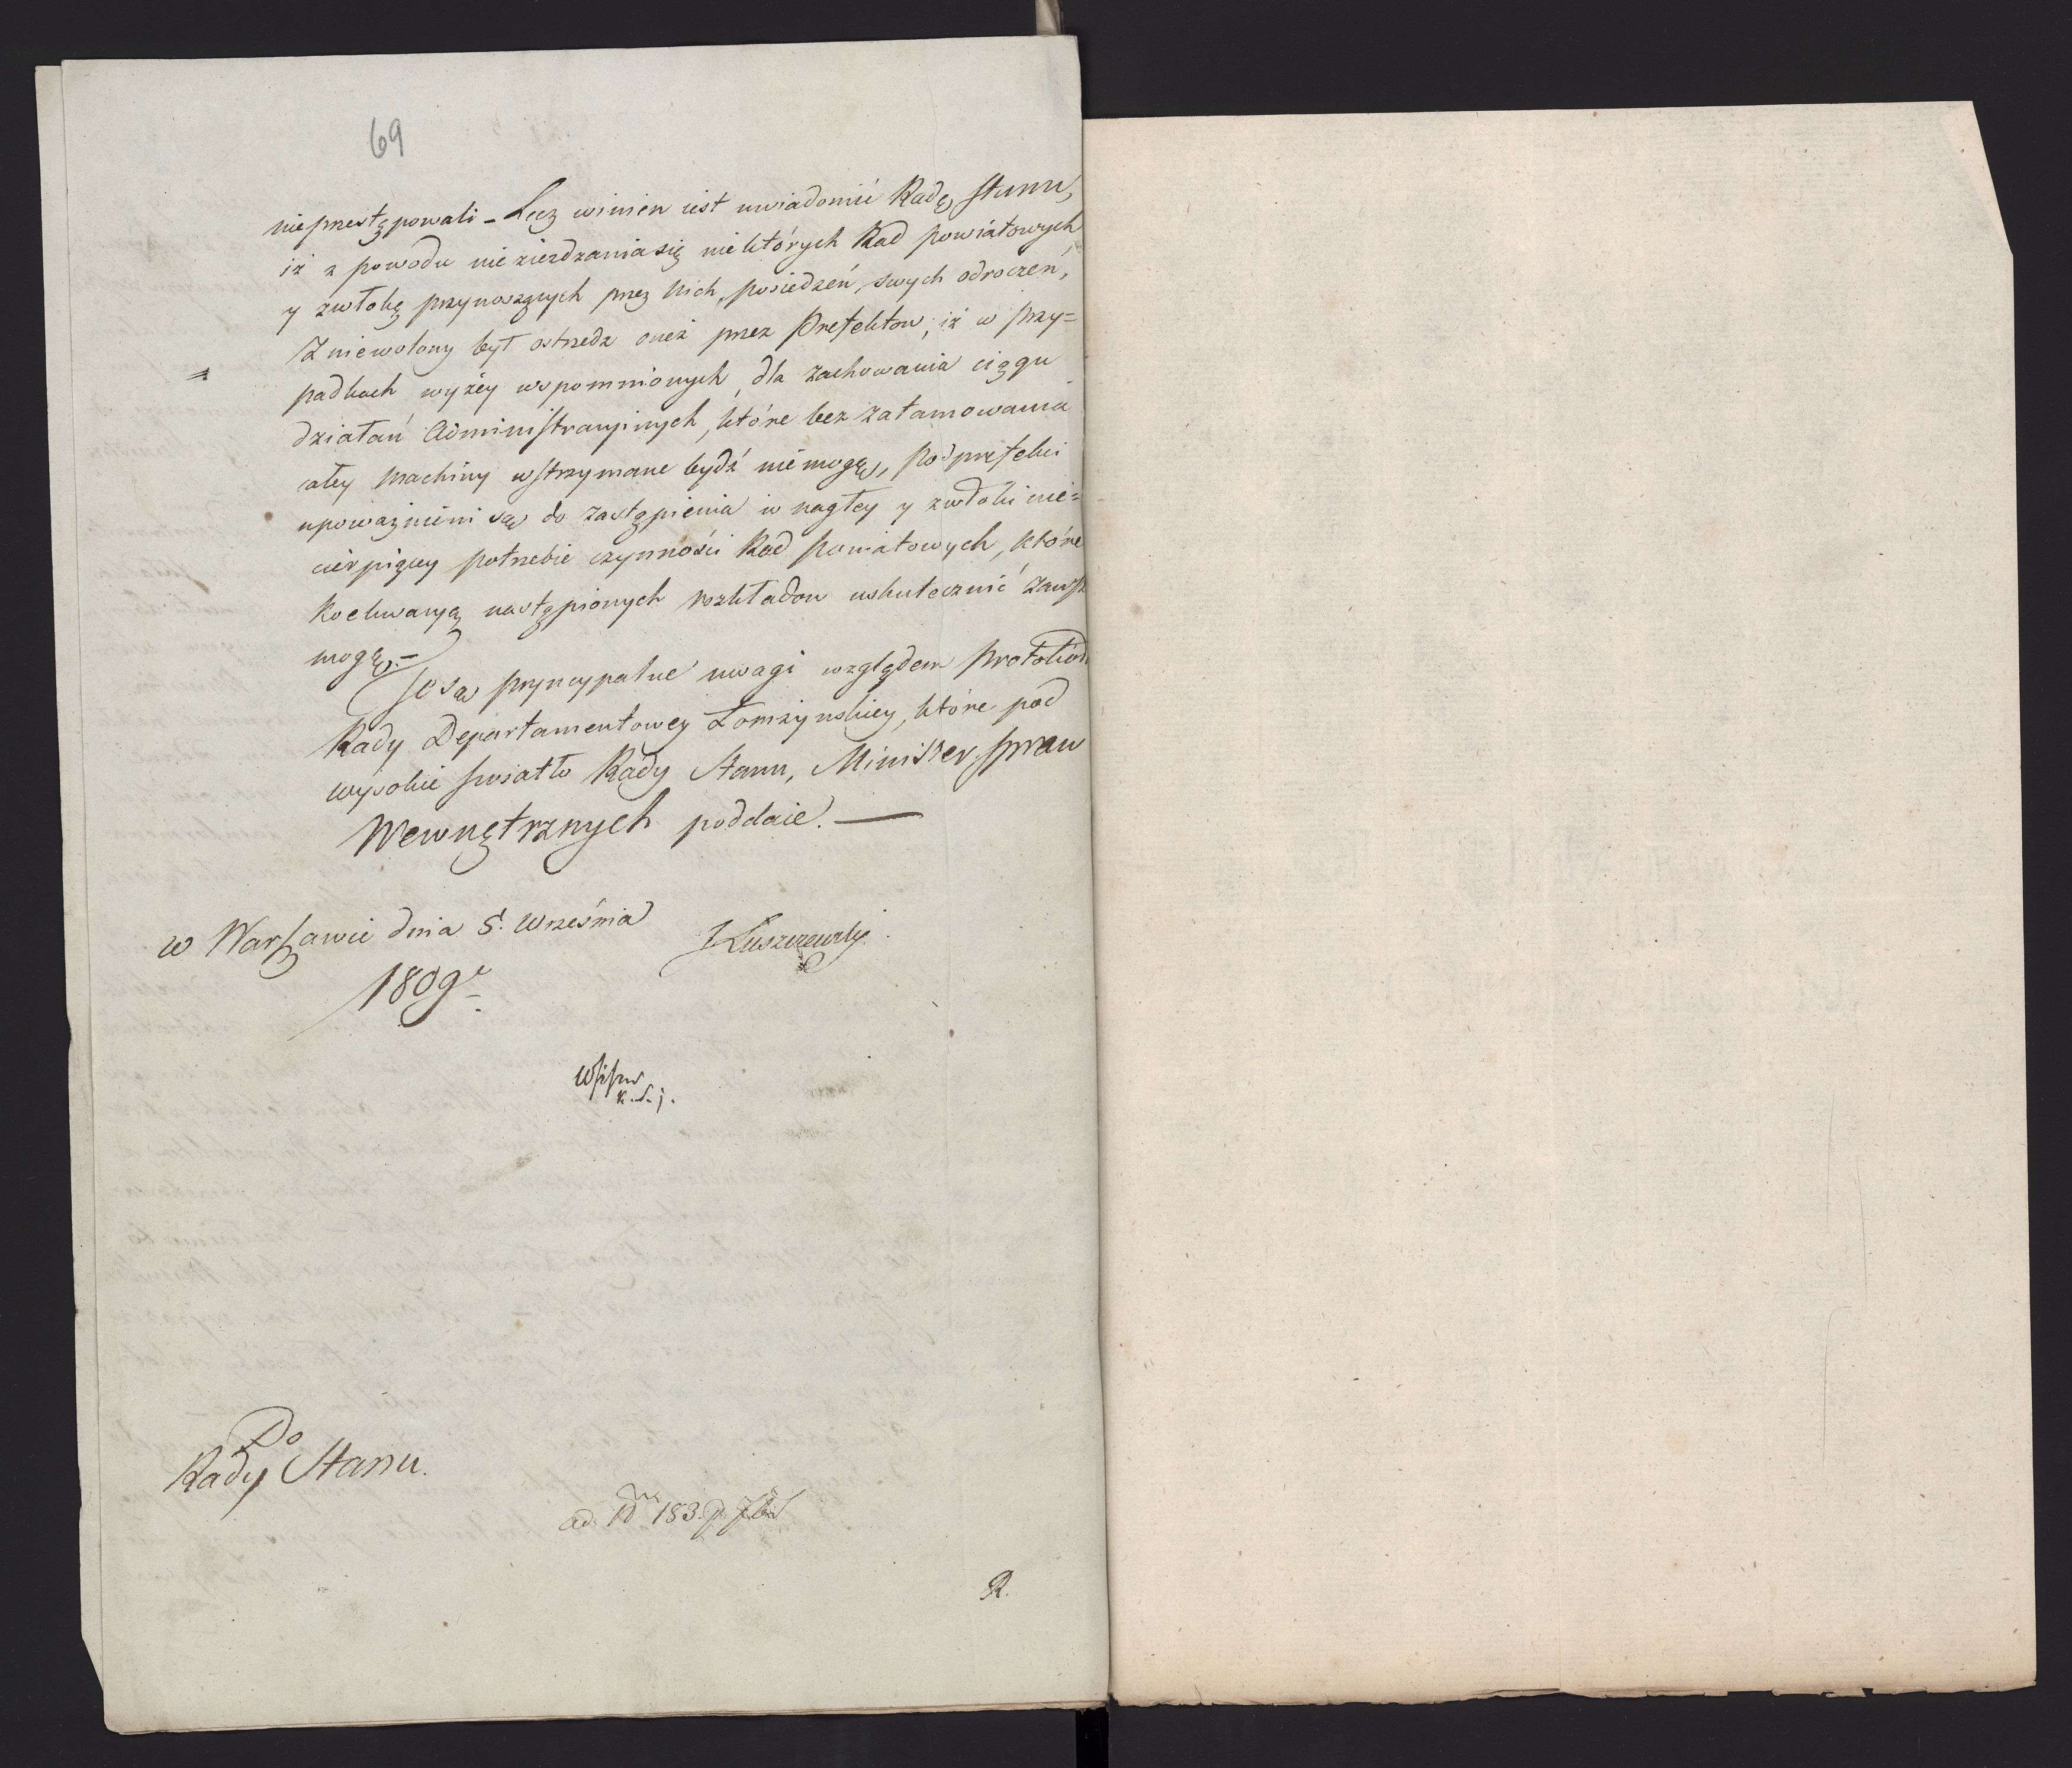 69
nieprzestępowali – Lecz winien iest uwiadomić Radę Stanu,
iż z powodu nie ziezdzania się niektórych Rad powiatowych
y zwłokę przynoszących przez nich, posiedzeń swych odroczeń,
Zniewolony był ostrzedz oneż przez Prefektow, iż w przy=
padkach wyżey wspomnionych, dla zachowania ciągu
działań Administracyinych, które bez zatamowania
całey machiny wstrzymane bydź nie mogą, Podprefekci
upoważnieni są do zastąpienia w nagłey y zwłoki nie=
cierpiącey potrzebie czynności Rad Powiatowych, które
Koekwacyą nastąpionych rozkładow uskutecznić zawsze
mogą. –
Te są pryncypalne uwagi względem Protokółu
Rady Departamentowey Łomżynskiey, które pod
wysokie światło Rady Stanu, Minister Spraw
Wewnętrznych poddaie. —
w Warszawie dnia 5. Września
1809.
JŁuszczewski
K.S.J.
Do
Rady Stanu.
ad. N 183.
R.